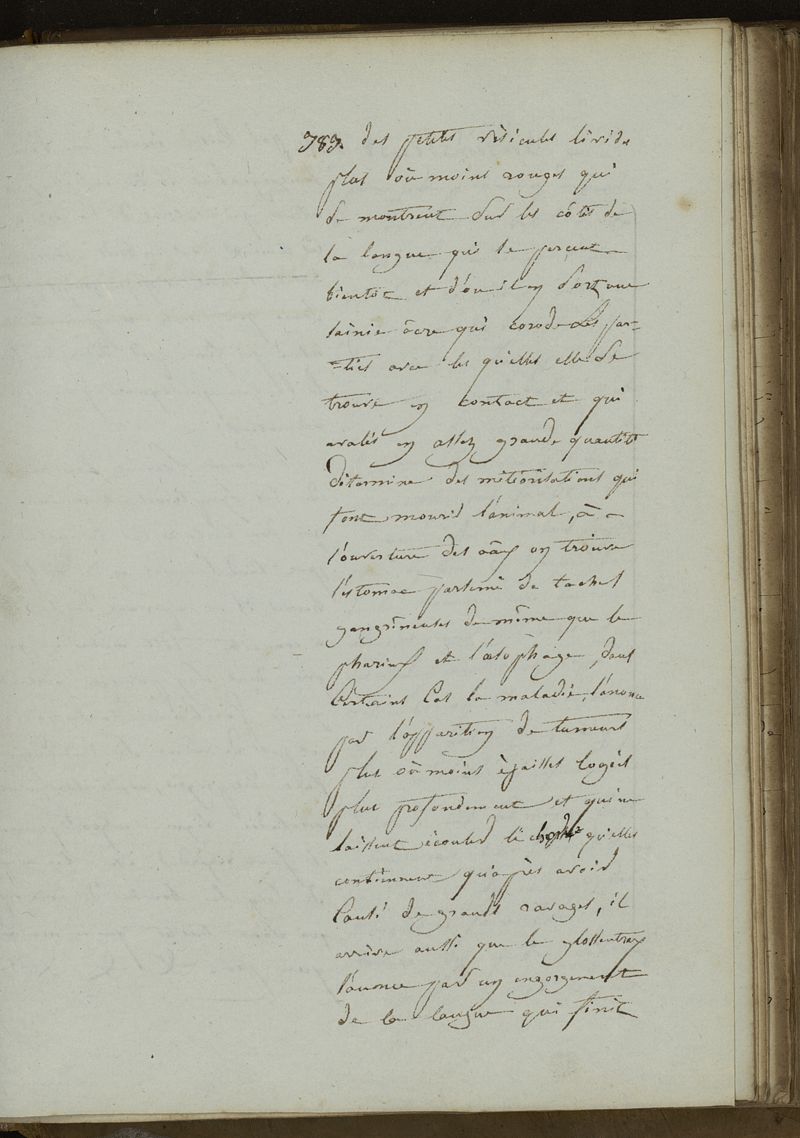 783. des petites vésicules livide
plus où moins rouges qui
se montrent sur les côtés de
la langue qui se percent
bientôt et d'ou il en sort une
sainie âcre qui corode les par-
-ties avec les quelles elle se
trouve en contact et qui
avalés en assez grande quantité
détermine des météorisations qui
font mourir l'animal, à
l'ouverture des on trouve
l'éstomac parsemé de taches
gangréneuses de même que le
pharinx et l'œsophage, dans
certains cas la maladie s'anonce
par l'apparition de tumeurs
plus où moins épaisses logées
plus profondément et qui ne
laissent écouler qu'elles
contiennent qu'après avoir
causé de grands ravages, il
arrive aussi que le glossantrax
s'anonce par un engorgement
de la langue qui finit